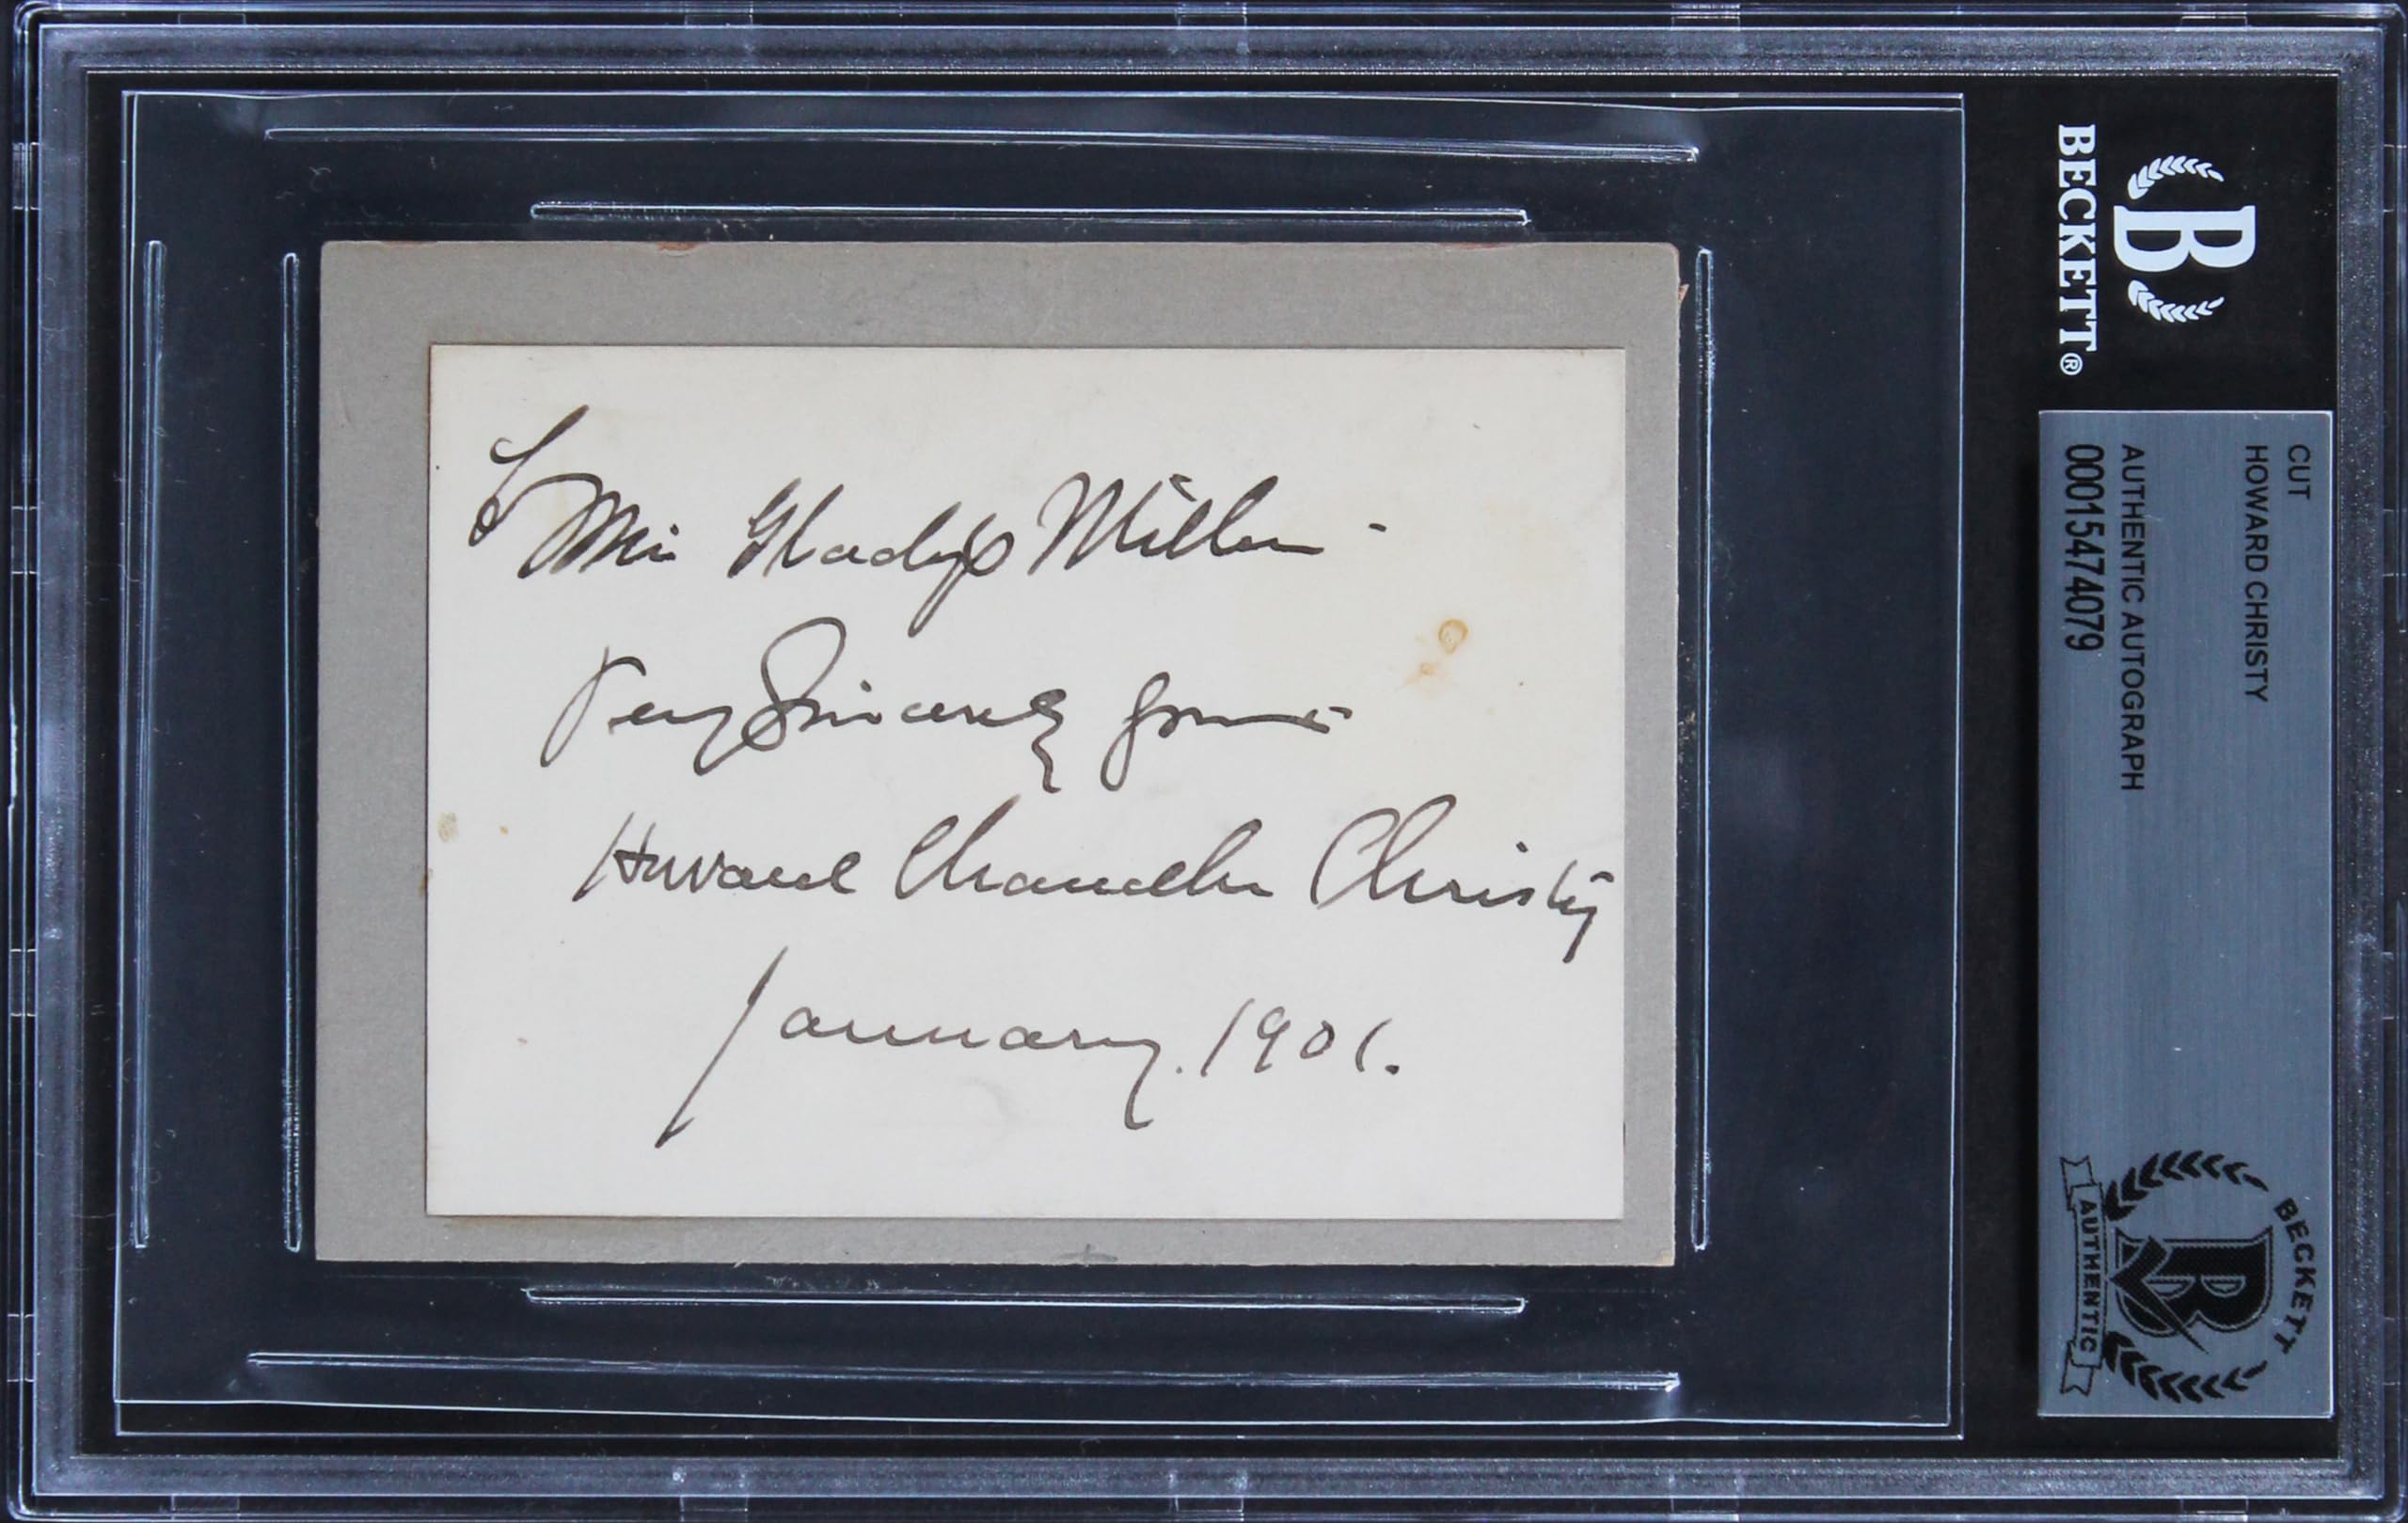 To
Miss Gladys Miller -
Very Sincerely yours -
Howard Chandler Christy
January. 1901.
BECKETT®
CUT
HOWARD CHRISTY
AUTHENTIC AUTOGRAPH
00015474079
BECKETT
AUTHENTIC